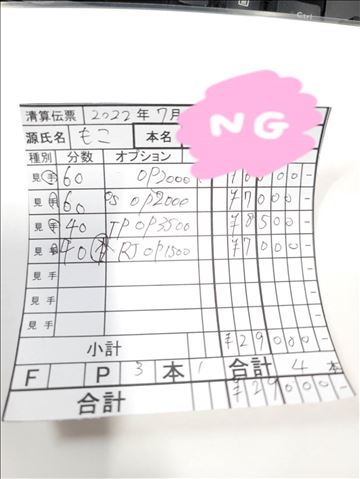 Ctrl
清算伝票 2022年7月
NG
源氏名 もこ 本名
種別 分数 オプション
見 手 60 OP2000
見 手 60 OP2000 ¥7000-
見 手 40 OP3500 ¥8500-
見 手 40 OP1500 ¥7000-
見 手 -
見 手 -
見 手 -
小計 ¥29000-
F P 3 本 1 合計 4 本
合計 ¥29000-